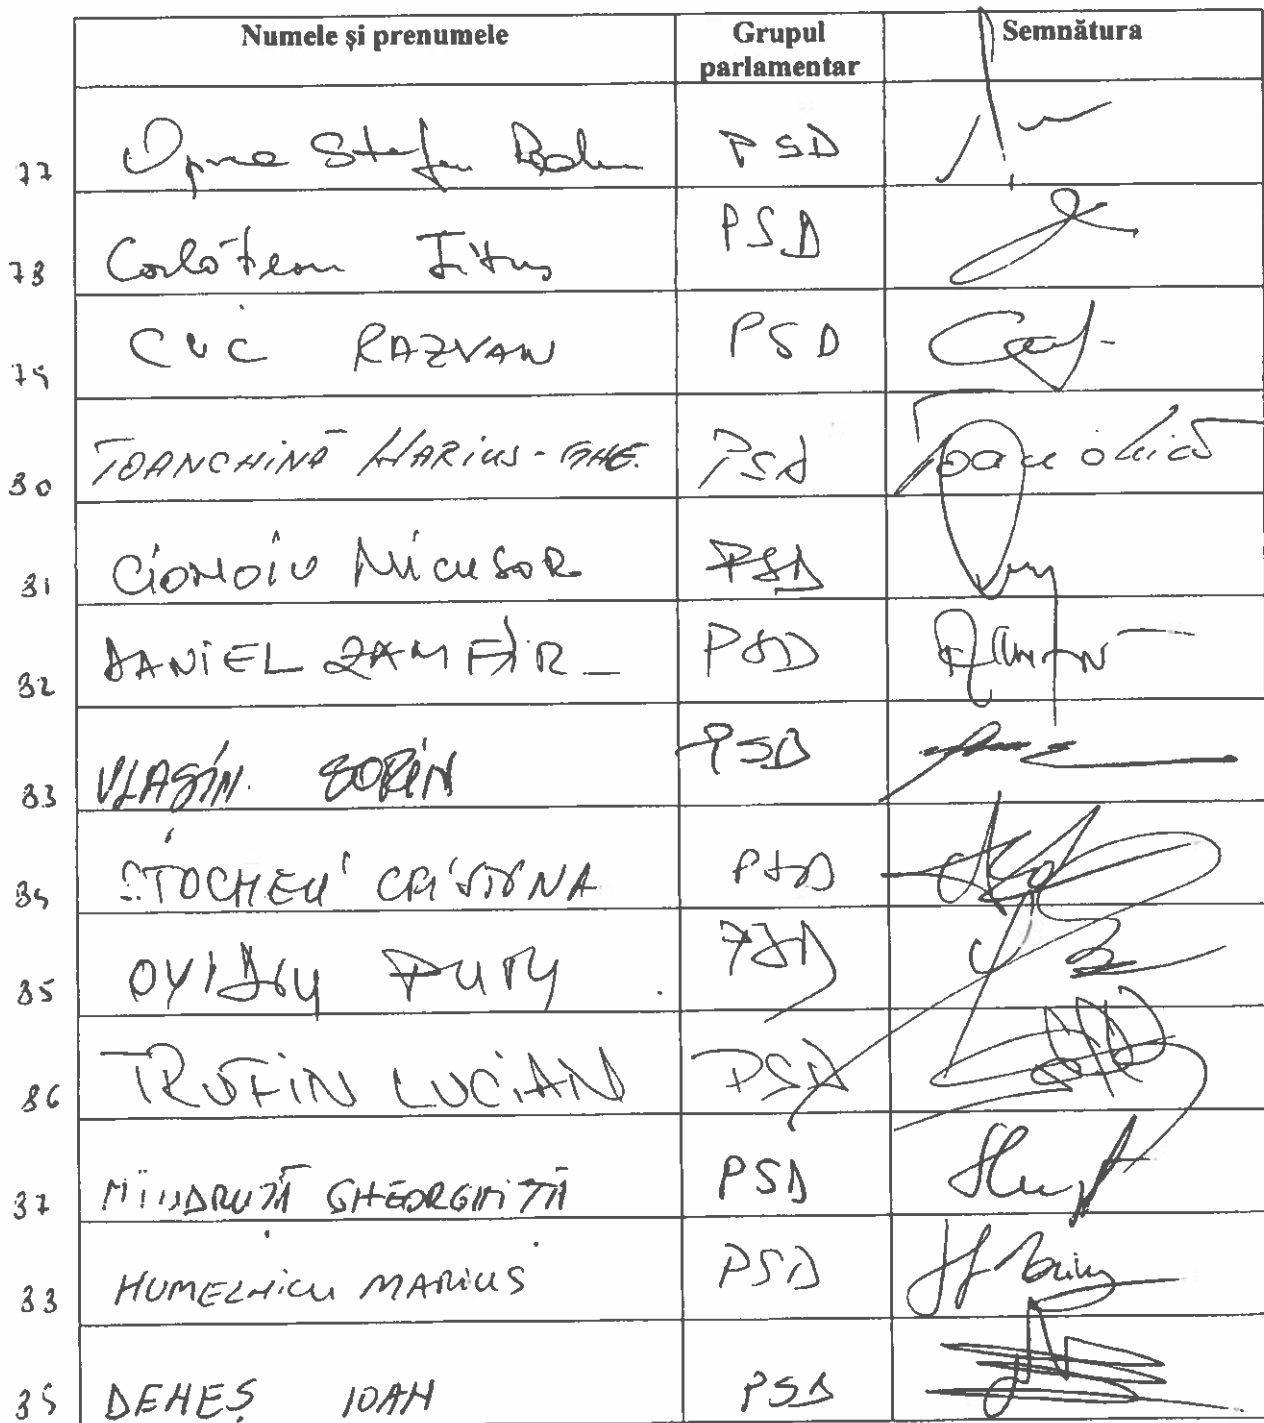 Numele și prenumele Grupul parlamentar Semnătura
77 Oprea Stefan Radu PSD
78 Corlățean Titus PSD
79 CUC RAZVAN PSD
80 TOANCHINĂ MARIUS-GHE. PSD
81 CIONOIU NICUSOR PSD
82 DANIEL ZAMFIR PSD
83 VLAȘIN SORIN PSD
84 STOCHECI CRISTINA PSD
85 OVIDIU PUIU PSD
86 TRUFIN LUCIAN PSD
87 MÎNDRUȚĂ GHEORGHIȚĂ PSD
88 HUMELNICU MARIUS PSD
89 DENEȘ IOAN PSD